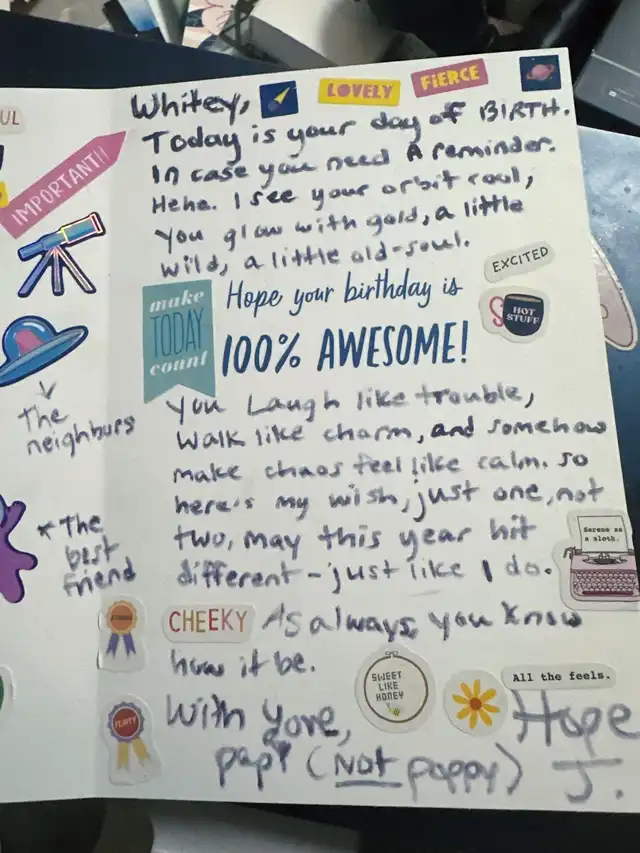 UL
IMPORTANT!!
The
neighburs
*The
best
friend
Whitey,
LOVELY
FIERCE
Today is your day of BIRTH.
In case you need A reminder.
Hehe. I see your orbit cool,
you glow with gold, a little
wild, a little old-soul.
EXCITED
make
TODAY
count
Hope your birthday is
100% AWESOME!
HOT
STUFF
You Laugh like trouble,
Walk like charm, and somehow
make chaos feel like calm. so
here's my wish, just one, not
two, may this year hit
different - just like I do.
Serene as
a sloth.
CHEEKY
As always, you know
how it be.
SWEET
LIKE
HONEY
All the feels.
FLIRTY
With yore,
papi (Not poppy)
Hope
J.